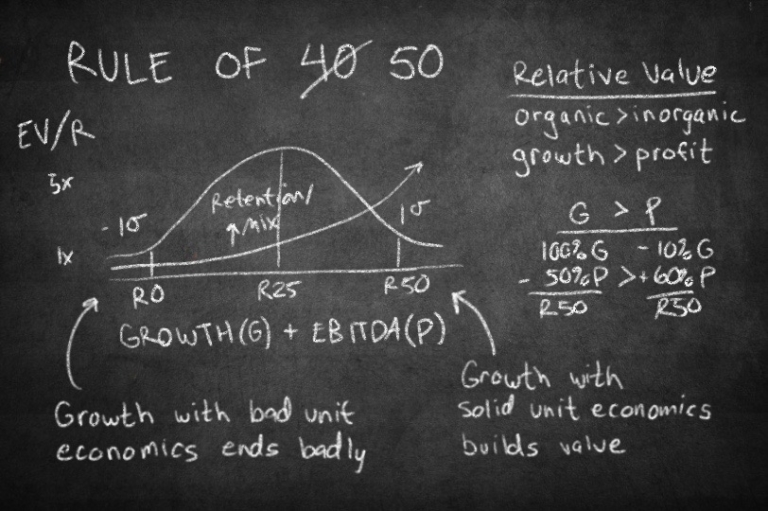 RULE OF 40 50
EV/R
5x
1x
-1σ
Retention/
↑Mix
1σ
R0
R25
R50
GROWTH(G) + EBITDA(P)
Growth with bad unit
economics ends badly
Growth with
solid unit economics
builds value
Relative Value
organic > inorganic
growth > profit
G > P
100% G - 10% G
- 50% P > + 60% P
R50 R50